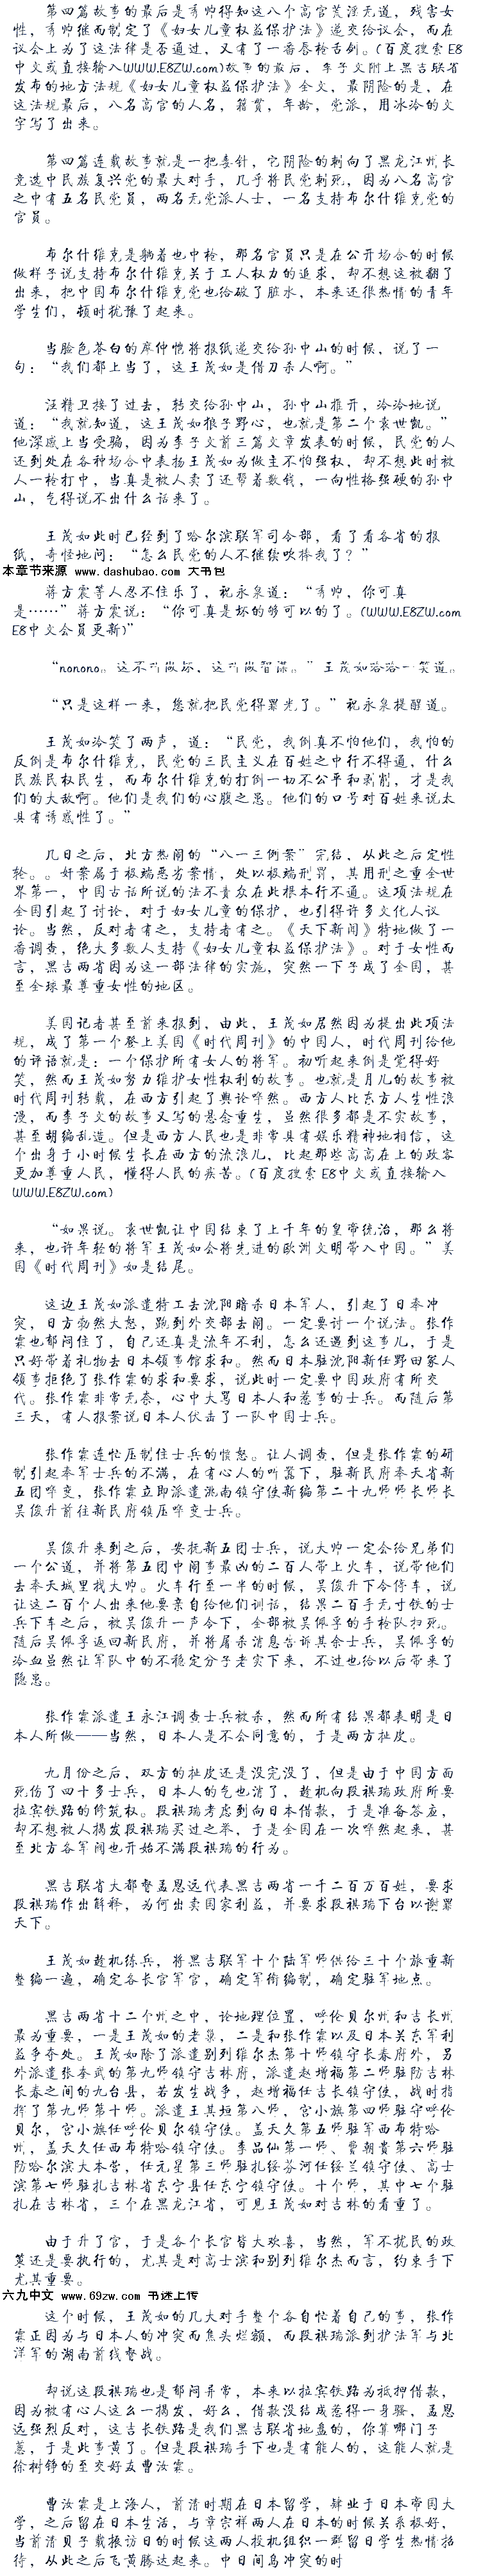 第四篇故事的最后是秀帅得知这八个高官荒淫无道，残害女
性，秀帅继而制定了《妇女儿童权益保护法》递交给议会，而在
议会上为了这法律是否通过，又有了一番唇枪舌剑。(百度搜索E8
中文或直接输入WWW.E8ZW.com)故事的最后，李子文附上黑吉联省
发布的地方法规《妇女儿童权益保护法》全文，最阴险的是，在
这法规最后，八名高官的人名，籍贯，年龄，党派，用冰冷的文
字写了出来。
第四篇连载故事就是一把毒针，它阴险的刺向了黑龙江州长
竞选中民族复兴党的最大对手，几乎将民党刺死，因为八名高官
之中有五名民党员，两名无党派人士，一名支持布尔什维克党的
官员。
布尔什维克是躺着也中枪，那名官员只是在公开场合的时候
做样子说支持布尔什维克关于工人权力的追求，却不想这被翻了
出来，把中国布尔什维克党也给破了脏水，本来还很热情的青年
学生们，顿时犹豫了起来。
当脸色苍白的廖仲恺将报纸递交给孙中山的时候，说了一
句：“我们都上当了，这王茂如是借刀杀人啊。”
汪精卫接了过去，转交给孙中山，孙中山推开，冷冷地说
道：“我就知道，这王茂如狼子野心，也就是第二个袁世凯。”
他深感上当受骗，因为李子文前三篇文章发表的时候，民党的人
还到处在各种场合中表扬王茂如为做主不怕强权，却不想此时被
人一枪打中，当真是被人卖了还帮着数钱，一向性格强硬的孙中
山，气得说不出什么话来了。
王茂如此时已经到了哈尔滨联军司令部，看了看各省的报
纸，奇怪地问：“怎么民党的人不继续吹捧我了？”
本章节来源 www.dashubao.com 大书包
蒋方震等人忍不住乐了，祝永泉道：“秀帅，你可真
是……”蒋方震说：“你可真是坏的够可以的了。(WWW.E8ZW.com
E8中文会员更新)”
“nonono。这不叫做坏，这叫做智谋。”王茂如哈哈一笑道。
“只是这样一来，您就把民党得罪光了。”祝永泉提醒道。
王茂如冷笑了两声，道：“民党，我倒真不怕他们，我怕的
反倒是布尔什维克，民党的三民主义在百姓之中行不得通，什么
民族民权民生，而布尔什维克的打倒一切不公平和剥削，才是我
们的大敌啊。他们是我们的心腹之患。他们的口号对百姓来说太
具有诱惑性了。”
几日之后，北方热闹的“八一三例案”完结，从此之后定性
轮。。奸案属于极端恶劣案情，处以极端刑罚，其用刑之重全世
界第一，中国古话所说的法不责众在此根本行不通。这项法规在
全国引起了讨论，对于妇女儿童的保护，也引得许多文化人议
论。当然，反对者有之，支持者有之。《天下新闻》特地做了一
番调查，绝大多数人支持《妇女儿童权益保护法》。对于女性而
言，黑吉两省因为这一部法律的实施，突然一下子成了全国，甚
至全球最尊重女性的地区。
美国记者甚至前来报到，由此，王茂如居然因为提出此项法
规，成了第一个登上美国《时代周刊》的中国人，时代周刊给他
的评语就是：一个保护所有女人的将军。初听起来倒是觉得好
笑，然而王茂如努力维护女性权利的故事。也就是月儿的故事被
时代周刊转载，在西方引起了舆论哗然。西方人比东方人生性浪
漫，而李子文的故事又写的悬念重生，虽然很多都是不实故事，
甚至胡编乱造。但是西方人民也是非常具有娱乐精神地相信，这
个出身于小时候生长在西方的流浪儿，比起那些高高在上的政客
更加尊重人民，懂得人民的疾苦。(百度搜索E8中文或直接输入
WWW.E8ZW.com)
“如果说。袁世凯让中国结束了上千年的皇帝统治，那么将
来，也许年轻的将军王茂如会将先进的欧洲文明带入中国。”美
国《时代周刊》如是结尾。
这边王茂如派遣特工去沈阳暗杀日本军人，引起了日奉冲
突，日方勃然大怒，跑到外交部去闹。一定要讨一个说法。张作
霖也郁闷住了，自己还真是流年不利，怎么还遇到这事儿，于是
只好带着礼物去日本领事馆求和。然而日本驻沈阳新任野田冢人
领事拒绝了张作霖的求和要求，说此时一定要中国政府有所交
代。张作霖非常无奈，心中大骂日本人和惹事的士兵。而随后第
三天，有人报案说日本人伏击了一队中国士兵。
张作霖连忙压制住士兵的愤怒。让人调查，但是张作霖的研
制引起奉军士兵的不满，在有心人的听嚣下，驻新民府奉天省新
五团哗变，张作霖立即派遣洮南镇守使新编第二十九师师长师长
吴俊升前往新民府镇压哗变士兵。
吴俊升来到之后，安抚新五团士兵，说大帅一定会给兄弟们
一个公道，并将第五团中闹事最凶的二百人带上火车，说带他们
去奉天城里找大帅。火车行至一半的时候，吴俊升下令停车，说
让这二百个人出来他要亲自给他们训话，结果二百手无寸铁的士
兵下车之后，被吴俊升一声令下，全部被吴佩孚的手枪队扫死。
随后吴佩孚返回新民府，并将屠杀消息告诉其余士兵，吴佩孚的
冷血虽然让军队中的不稳定分子老实下来，不过也给以后带来了
隐患。
张作霖派遣王永江调查士兵被杀，然而所有结果都表明是日
本人所做——当然，日本人是不会同意的，于是两方扯皮。
九月份之后，双方的扯皮还是没完没了，但是由于中国方面
死伤了四十多士兵，日本人的气也消了，趁机向段祺瑞政府所要
拉宾铁路的修筑权。段祺瑞考虑到向日本借款，于是准备答应，
却不想被人揭发段祺瑞买过之举，于是全国在一次哗然起来，甚
至北方各军阀也开始不满段祺瑞的行为。
黑吉联省大都督孟恩远代表黑吉两省一千二百万百姓，要求
段祺瑞作出解释，为何出卖国家利益，并要求段祺瑞下台以谢罪
天下。
王茂如趁机练兵，将黑吉联军十个陆军师供给三十个旅重新
整编一遍，确定各长官军官，确定军衔编制，确定驻军地点。
黑吉两省十二个州之中，论地理位置，呼伦贝尔州和吉长州
最为重要，一是王茂如的老巢，二是和张作霖以及日本关东军利
益争夺处。王茂如除了派遣别列维尔杰第十师镇守长春府外，另
外派遣张奎武的第九师镇守吉林府，派遣赵增福第二师驻防吉林
长春之间的九台县，若发生战争，赵增福任吉长镇守使，战时指
挥了第九师第十师。派遣王其垣第八师，宫小族第四师驻守呼伦
贝尔，宫小族任呼伦贝尔镇守使。盖天久第五师驻军西布特哈
州，盖天久任西布特哈镇守使。李品仙第一师、曾朝贵第六师驻
防哈尔滨大本营，任元星第三师驻扎绥芬河任绥兰镇守使、高士
滨第七师驻扎吉林省东宁县任东宁镇守使。十个师，其中七个驻
扎在吉林省，三个在黑龙江省，可见王茂如对吉林的看重了。
由于升了官，于是各个长官皆大欢喜，当然，军不扰民的政
策还是要执行的，尤其是对高士滨和别列维尔杰而言，约束手下
尤其重要。
六九中文 www.69zw.com 书迷上传
这个时候，王茂如的几大对手整个各自忙着自己的事，张作
霖正因为与日本人的冲突而焦头烂额，而段祺瑞派到护法军与北
洋军的湖南前线督战。
却说这段祺瑞也是郁闷异常，本来以拉宾铁路为抵押借款，
因为被有心人这么一揭发，好么，借款没结成惹得一身骚，孟恩
远强烈反对，这吉长铁路是我们黑吉联省地盘的，你算哪门子
葱，于是此事黄了。但是段祺瑞手下也是有能人的，这能人就是
徐树铮的至交好友曹汝霖。
曹汝霖是上海人，前清时期在日本留学，肄业于日本帝国大
学，之后留在日本生活，与章宗祥两人在日本的时候关系极好，
当前清贝子载振访日的时候这两人投机组织一群留日学生热情招
待，从此之后飞黄腾达起来。中日间岛冲突的时